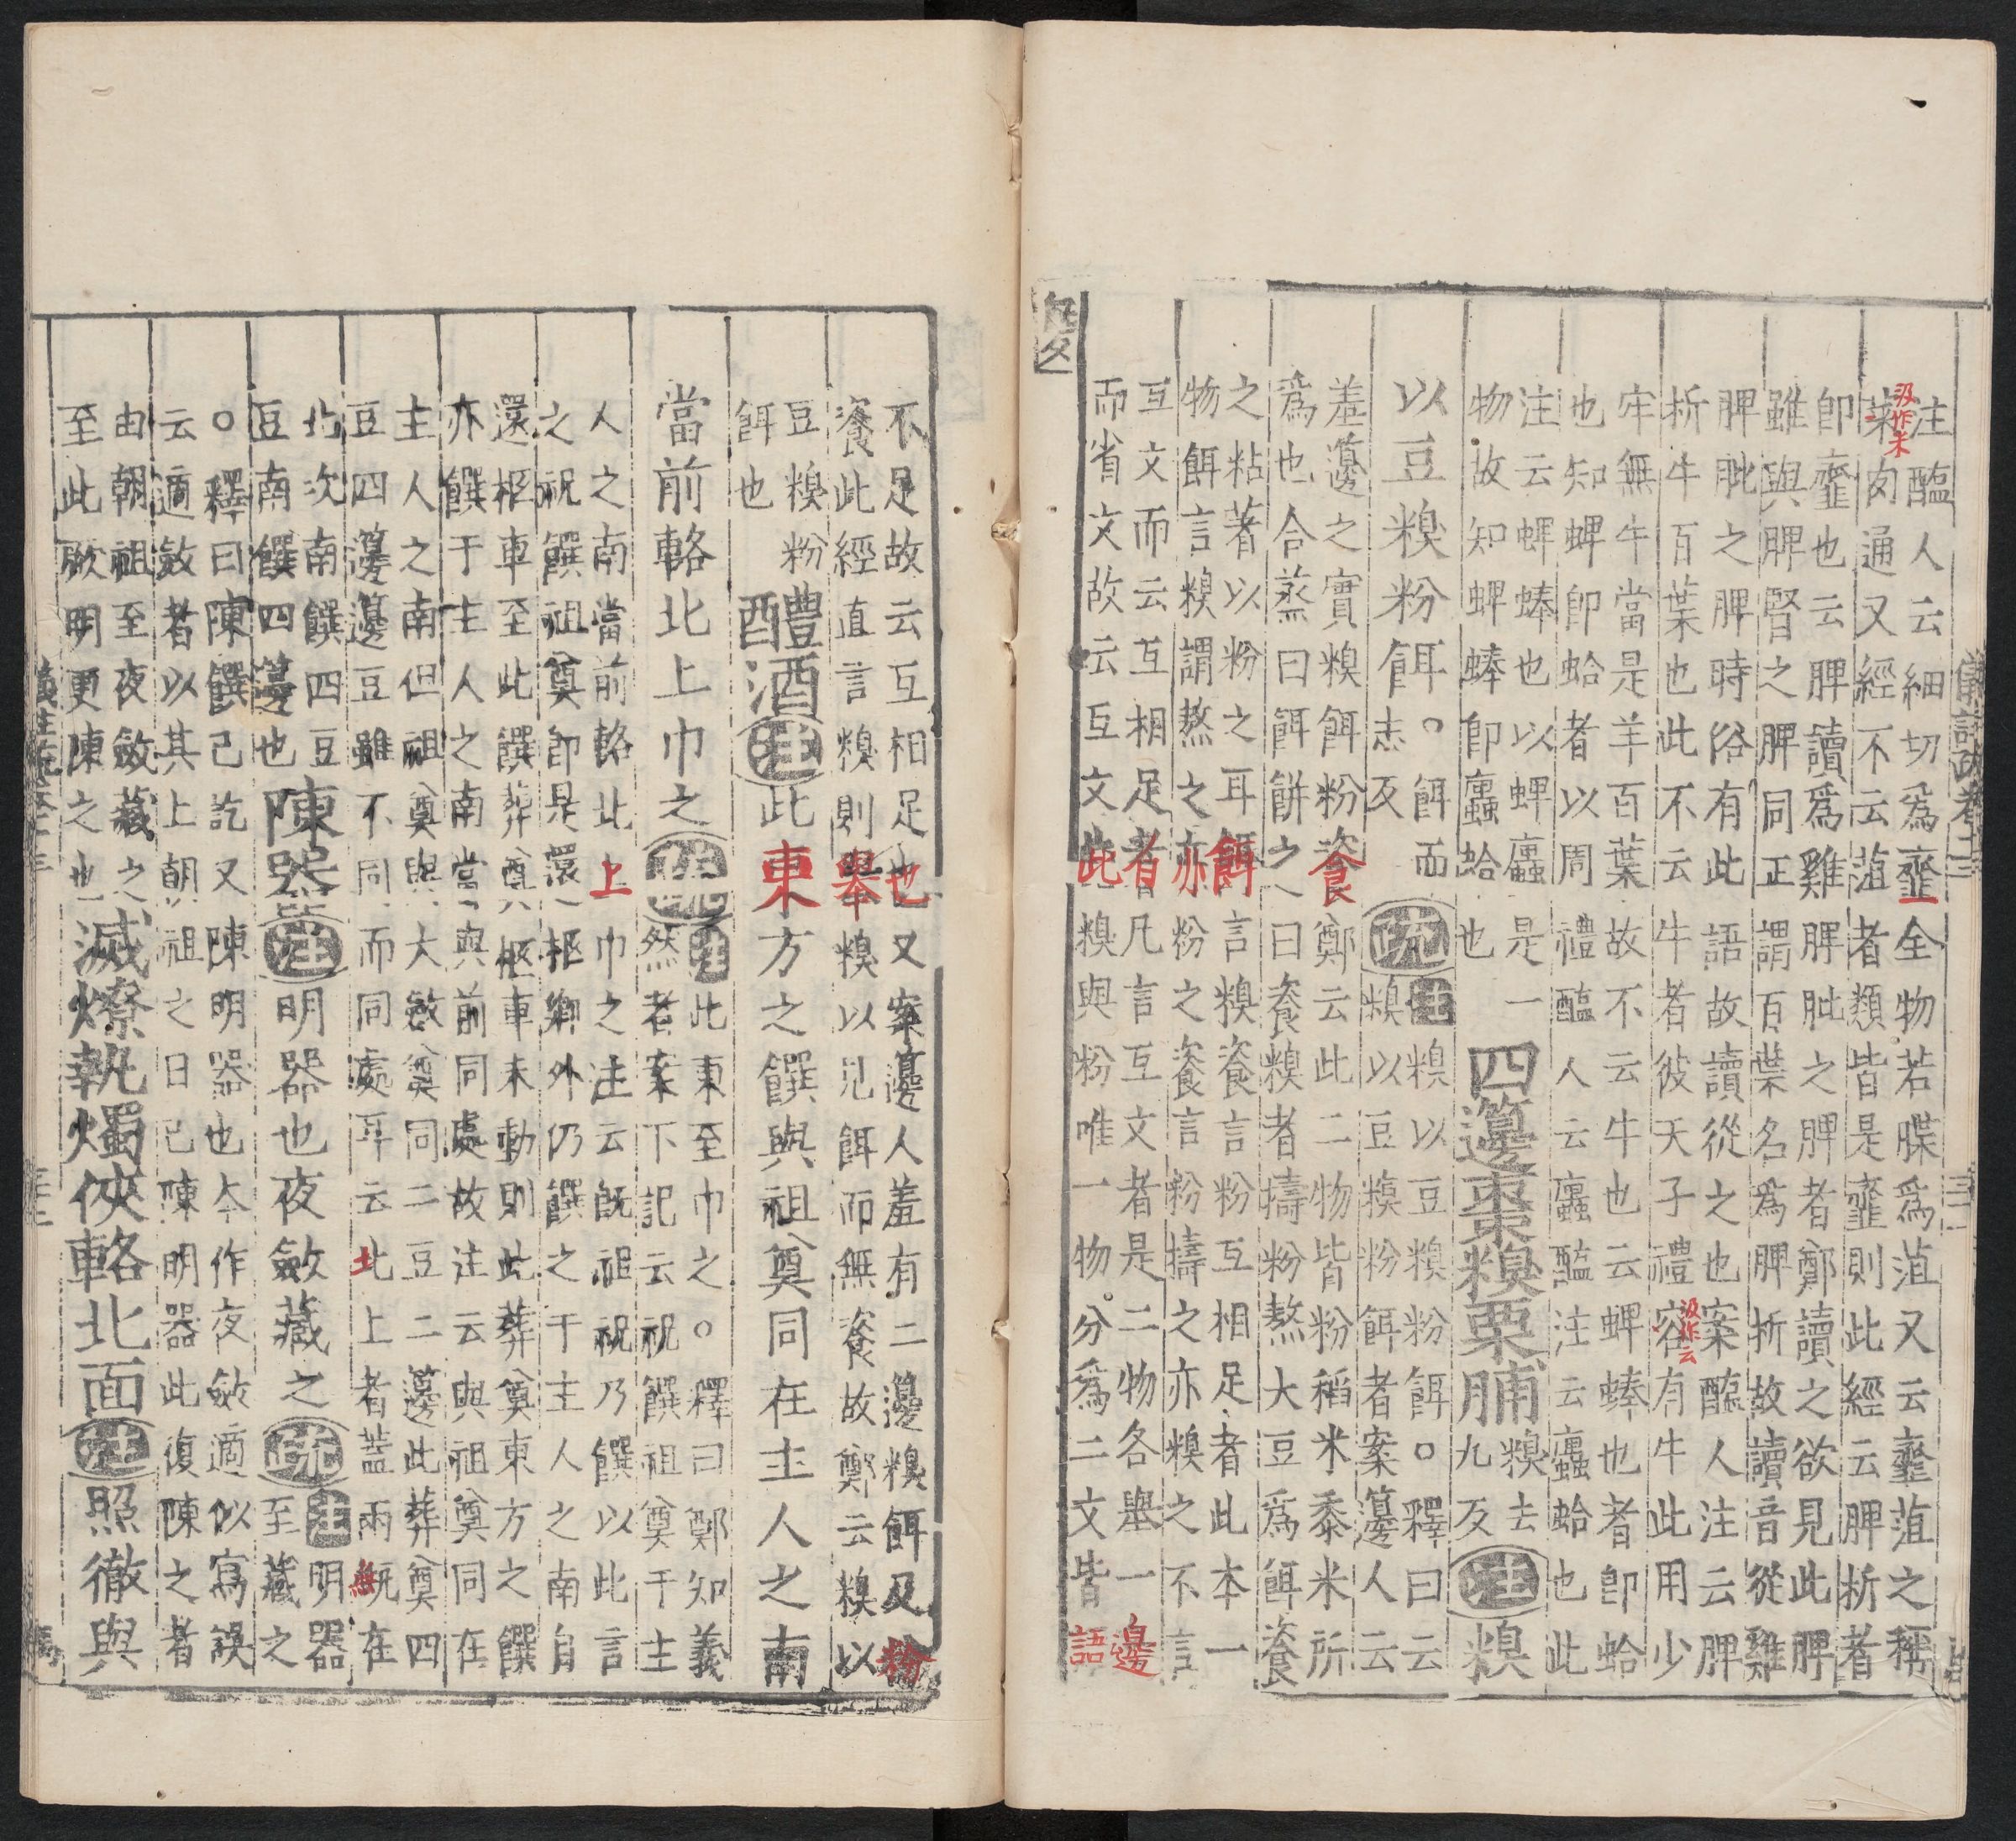 注醢人云細切爲韲全物若䐑爲菹又云韲菹之稱
菜肉通又經不云菹者類皆是韲則此經云脾析者
汲作未
即韲也云脾讀爲雞脾肶之脾者鄭讀之欲見此脾
雖與脾腎之脾同正謂百葉名爲脾析故讀音從雞
脾肶之脾時俗有此語故讀從之也案醢人注云脾
析牛百葉也此不云牛者彼天子禮容有牛此用少
汲作云
牢無牛當是羊百葉故不云牛也云蜱蜯也者即蛤
也知蜱即蛤者以周禮醢人云蠯醢注云蠯蛤也此
注云蜱蜯也以蜱蠯是一
物故知蜱蜯即蠯蛤也
四籩棗糗栗脯
糗去
九反
注
糗
以豆糗粉餌。
餌而
志反
疏
注
糗以豆糗粉餌。釋曰云
糗以豆糗粉餌者案籩人云
羞籩之實糗餌粉餈鄭云此二物皆粉稻米黍米所
爲也合蒸曰餌餅之曰餈糗者擣粉熬大豆爲餌餈
之粘著以粉之耳餌言糗餈言粉互相足者此本一
物餌言糗謂熬之亦粉之餈言粉擣之亦糗之不言
互文而云互相足者凡言互文者是二物各舉一邊
而省文故云互文此糗與粉唯一物分爲二文皆語
不足故云互相足也又案籩人羞有二籩糗餌及粉
餈此經直言糗則舉糗以見餌而無餈故鄭云糗以
豆糗粉
餌也
醴酒
注
此東方之饌與祖奠同在主人之南
當前輅北上巾之
疏
注
此東至巾之。釋曰鄭知義
然者案下記云祝饌祖奠于主
人之南當前輅北上巾之注云旣祖祝乃饌以此言
之祝饌祖奠即是還柩鄉外仍饌之于主人之南自
還柩車至此饌葬奠柩車未動則此葬奠東方之饌
亦饌于主人之南當與前同處故注云與祖奠同在
主人之南但祖奠與大斂奠同二豆二籩此葬奠四
豆四籩籩豆雖不同而同處耳云北上者蓋兩甒在
北次南饌四豆
豆南饌四籩也
陳器
注
明器也夜斂藏之
疏
注
明器
至藏之
。釋曰陳饌已訖又陳明器也今作夜斂適似寫誤
云適斂者以其上朝祖之日已陳明器此復陳之者
由朝祖至夜斂藏之
至此厥明更陳之也
滅燎執燭俠輅北面
注
照徹與